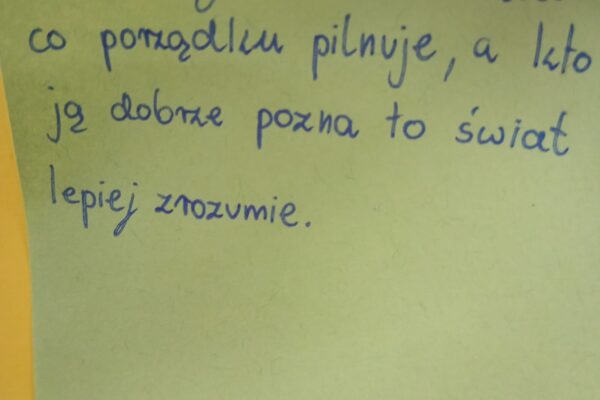 co porządku pilnuje, a kto
ją dobrze pozna to świat
lepiej zrozumie.